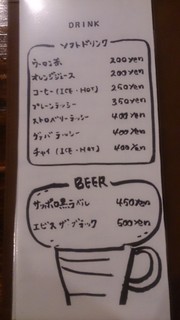 DRINK
ソフトドリンク
ウーロン茶 200yen
オレンジジュース 200yen
コーヒー(ICE・HOT) 250yen
プレーンラッシー 350yen
ストロベリーラッシー 400yen
グァバラッシー 400yen
チャイ(ICE・HOT) 400yen
BEER
サッポロ黒ラベル 450yen
エビスザブラック 500yen